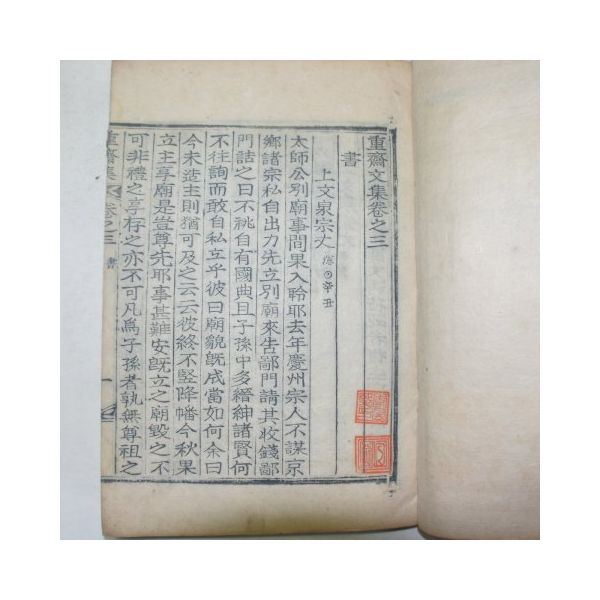 重齋文集卷之三
書
上文泉宗丈 辛丑
太師公別廟事間果入聆耶去年慶州宗人不謀京
鄉諸宗私自出力先立別廟來告鄙門請其收錢鄙
門詰之曰不祧自有國典且子孫中多縉紳諸賢何
不往詢而敢自私立乎彼曰廟貌旣成當如何余曰
今未造主則猶可及之云云彼終不竪降幡今秋果
立主享廟是豈尊先耶事甚難安旣立之廟毀之不
可非禮之享存之亦不可凡爲子孫者孰無尊祖之
重齋集 卷之三 書 一